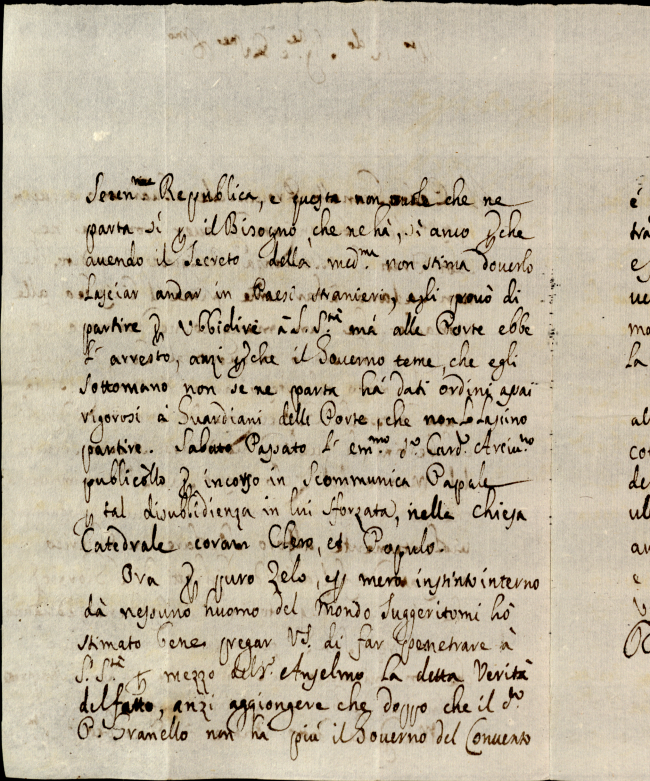 Seren.me Republica, e questa non vuole che ne
parta sì p il Bisogno che ne hà, sì anco pche
avendo il Secreto della med.ma non stima doverlo
Lasciar andar in Paesi stranieri, egli provò di
partire p Ubbidire à S. S.tà mà alle Porte ebbe
l' arresto, anzi pche il Governo teme, che egli
sottomano non se ne parta hà dati ordini assai
rigorosi à Guardiani delle Porte, che non lo Lascino
partire. Sabato Passato l' em.mo S.r Card. Arciv.vo
publicollo p incorso in Scommunica Papale
p tal disubbidienza in lui sforzata, nella Chiesa
Catedrale coram Clero, et Populo.
Ora p puro Zelo, e p mero instinto interno
dà nessuno huomo del Mondo suggeritomi hò
stimato bene pregar V.S. di far penetrare à
S. S.tà p mezzo del S.r Anselmo La detta Verità
del fatto, anzi aggiongere che doppo che il d.to
P. Granello non ha più il Governo del Convento
é
tra
e
ve
mo
La
al
co
de
ul
av
e